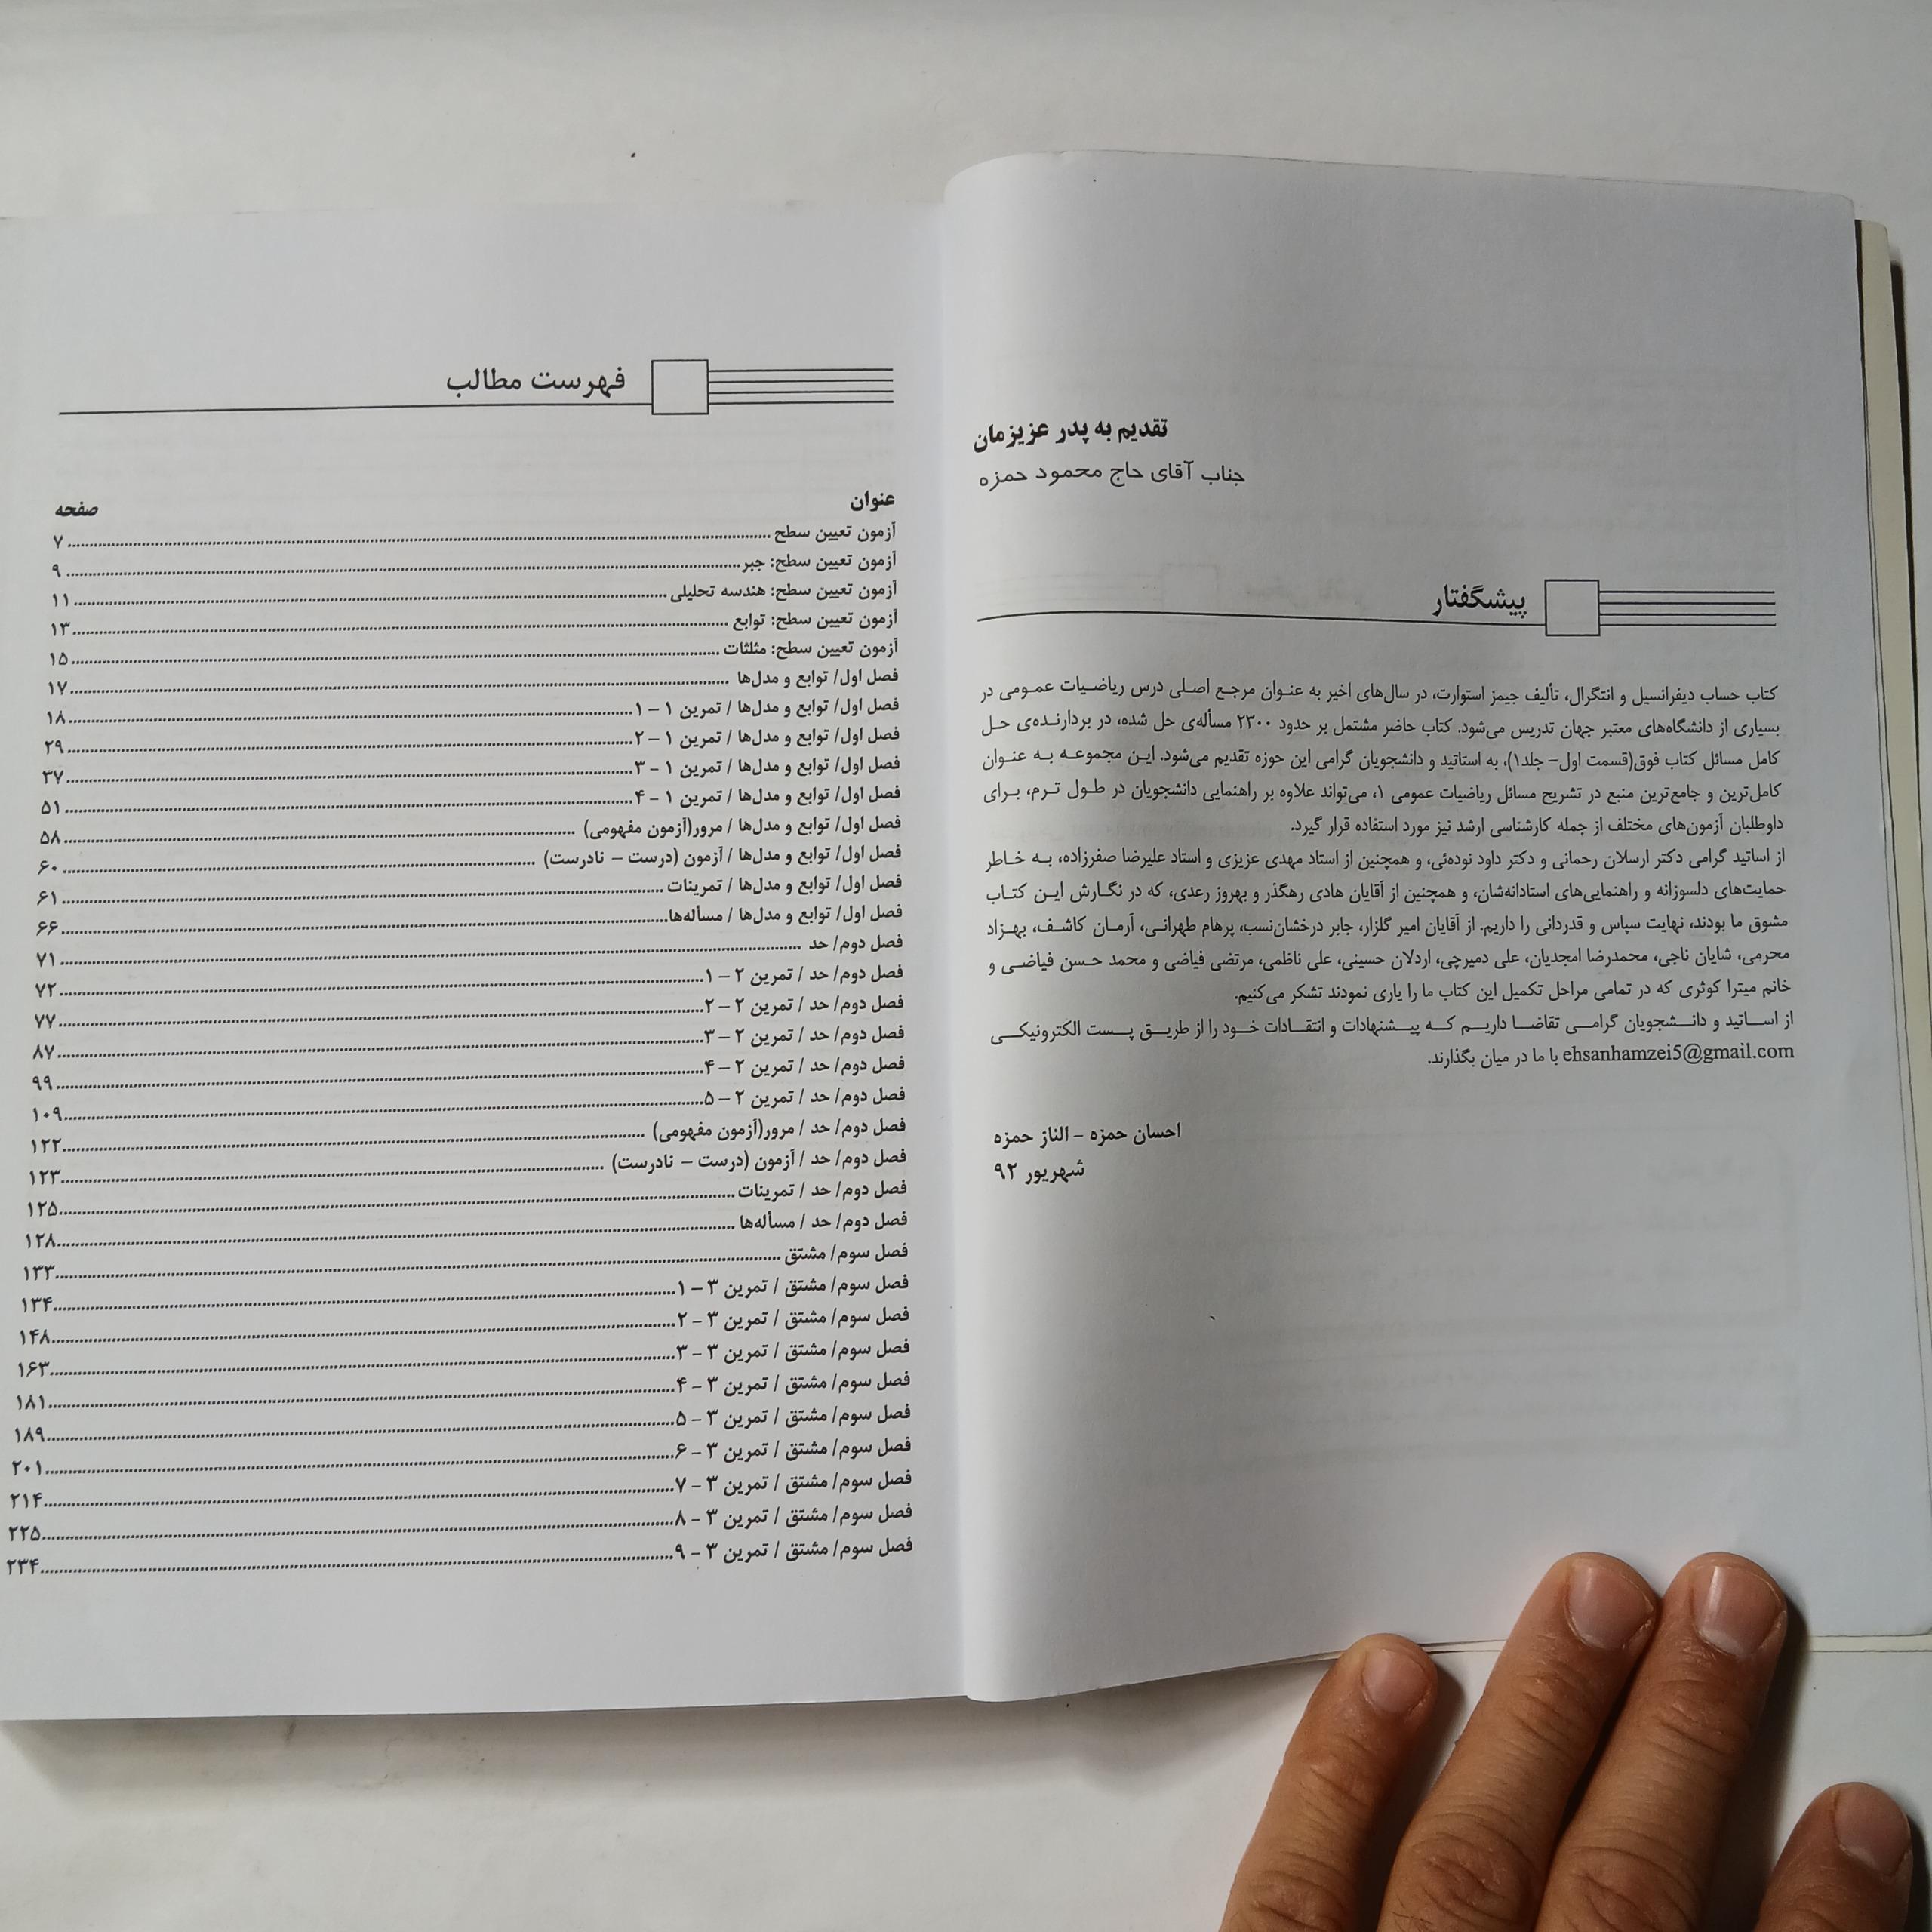 تقدیم به پدر عزیزمان
جناب آقای حاج محمود حمزه
پیشگفتار
کتاب حساب دیفرانسیل و انتگرال، تألیف جیمز استوارت، در سال‌های اخیر به عنوان مرجع اصلی درس ریاضیات عمومی در
بسیاری از دانشگاه‌های معتبر جهان تدریس می‌شود. کتاب حاضر مشتمل بر حدود ۲۳۰۰ مسأله‌ی حل شده، در بردارنده‌ی حل
کامل مسائل کتاب فوق(قسمت اول- جلد۱)، به استاتید و دانشجویان گرامی این حوزه تقدیم می‌شود. این مجموعه به عنوان
کامل‌ترین و جامع‌ترین منبع در تشریح مسائل ریاضیات عمومی ۱، می‌تواند علاوه بر راهنمایی دانشجویان در طول ترم، برای
داوطلبان آزمون‌های مختلف از جمله کارشناسی ارشد نیز مورد استفاده قرار گیرد.
از اساتید گرامی دکتر ارسلان رحمانی و دکتر داود نوده‌ئی، و همچنین از استاد مهدی عزیزی و استاد علیرضا صفرزاده، به خاطر
حمایت‌های دلسوزانه و راهنمایی‌های استادانه‌شان، و همچنین از آقایان هادی رهگذر و بهروز رعدی، که در نگارش این کتاب
مشوق ما بودند، نهایت سپاس و قدردانی را داریم. از آقایان امیر گلزار، جابر درخشان‌نسب، پرهام طهرانی، آرمان کاشف، بهزاد
محرمی، شایان ناجی، محمدرضا امجدیان، علی دمیرچی، اردلان حسینی، علی ناظمی، مرتضی فیاضی و محمد حسن فیاضی و
خانم میترا کوثری که در تمامی مراحل تکمیل این کتاب ما را یاری نمودند تشکر می‌کنیم.
از اساتید و دانشجویان گرامی تقاضا داریم که پیشنهادات و انتقادات خود را از طریق پست الکترونیکی
ehsanhamzei5@gmail.com با ما در میان بگذارند.
احسان حمزه - الناز حمزه
شهریور ۹۲
فهرست مطالب
عنوان صفحه
آزمون تعیین سطح ........ ۷
آزمون تعیین سطح: جبر ........ ۹
آزمون تعیین سطح: هندسه تحلیلی ........ ۱۱
آزمون تعیین سطح: توابع ........ ۱۳
آزمون تعیین سطح: مثلثات ........ ۱۵
فصل اول/ توابع و مدل‌ها ........ ۱۷
فصل اول/ توابع و مدل‌ها / تمرین ۱ – ۱ ........ ۱۸
فصل اول/ توابع و مدل‌ها / تمرین ۱ – ۲ ........ ۲۹
فصل اول/ توابع و مدل‌ها / تمرین ۱ – ۳ ........ ۳۷
فصل اول/ توابع و مدل‌ها / تمرین ۱ – ۴ ........ ۵۱
فصل اول/ توابع و مدل‌ها / مرور(آزمون مفهومی) ........ ۵۸
فصل اول/ توابع و مدل‌ها / آزمون (درست – نادرست) ........ ۶۰
فصل اول/ توابع و مدل‌ها / تمرینات ........ ۶۱
فصل اول/ توابع و مدل‌ها / مسأله‌ها ........ ۶۶
فصل دوم/ حد ........ ۷۱
فصل دوم/ حد / تمرین ۲ – ۱ ........ ۷۲
فصل دوم/ حد / تمرین ۲ – ۲ ........ ۷۷
فصل دوم/ حد / تمرین ۲ – ۳ ........ ۸۷
فصل دوم/ حد / تمرین ۲ – ۴ ........ ۹۹
فصل دوم/ حد / تمرین ۲ – ۵ ........ ۱۰۹
فصل دوم/ حد / مرور(آزمون مفهومی) ........ ۱۲۲
فصل دوم/ حد / آزمون (درست – نادرست) ........ ۱۲۳
فصل دوم/ حد / تمرینات ........ ۱۲۵
فصل دوم/ حد / مسأله‌ها ........ ۱۲۸
فصل سوم/ مشتق ........ ۱۳۳
فصل سوم/ مشتق / تمرین ۳ – ۱ ........ ۱۳۴
فصل سوم/ مشتق / تمرین ۳ – ۲ ........ ۱۴۸
فصل سوم/ مشتق / تمرین ۳ – ۳ ........ ۱۶۳
فصل سوم/ مشتق / تمرین ۳ – ۴ ........ ۱۸۱
فصل سوم/ مشتق / تمرین ۳ – ۵ ........ ۱۸۹
فصل سوم/ مشتق / تمرین ۳ – ۶ ........ ۲۰۱
فصل سوم/ مشتق / تمرین ۳ – ۷ ........ ۲۱۴
فصل سوم/ مشتق / تمرین ۳ – ۸ ........ ۲۲۵
فصل سوم/ مشتق / تمرین ۳ – ۹ ........ ۲۳۴